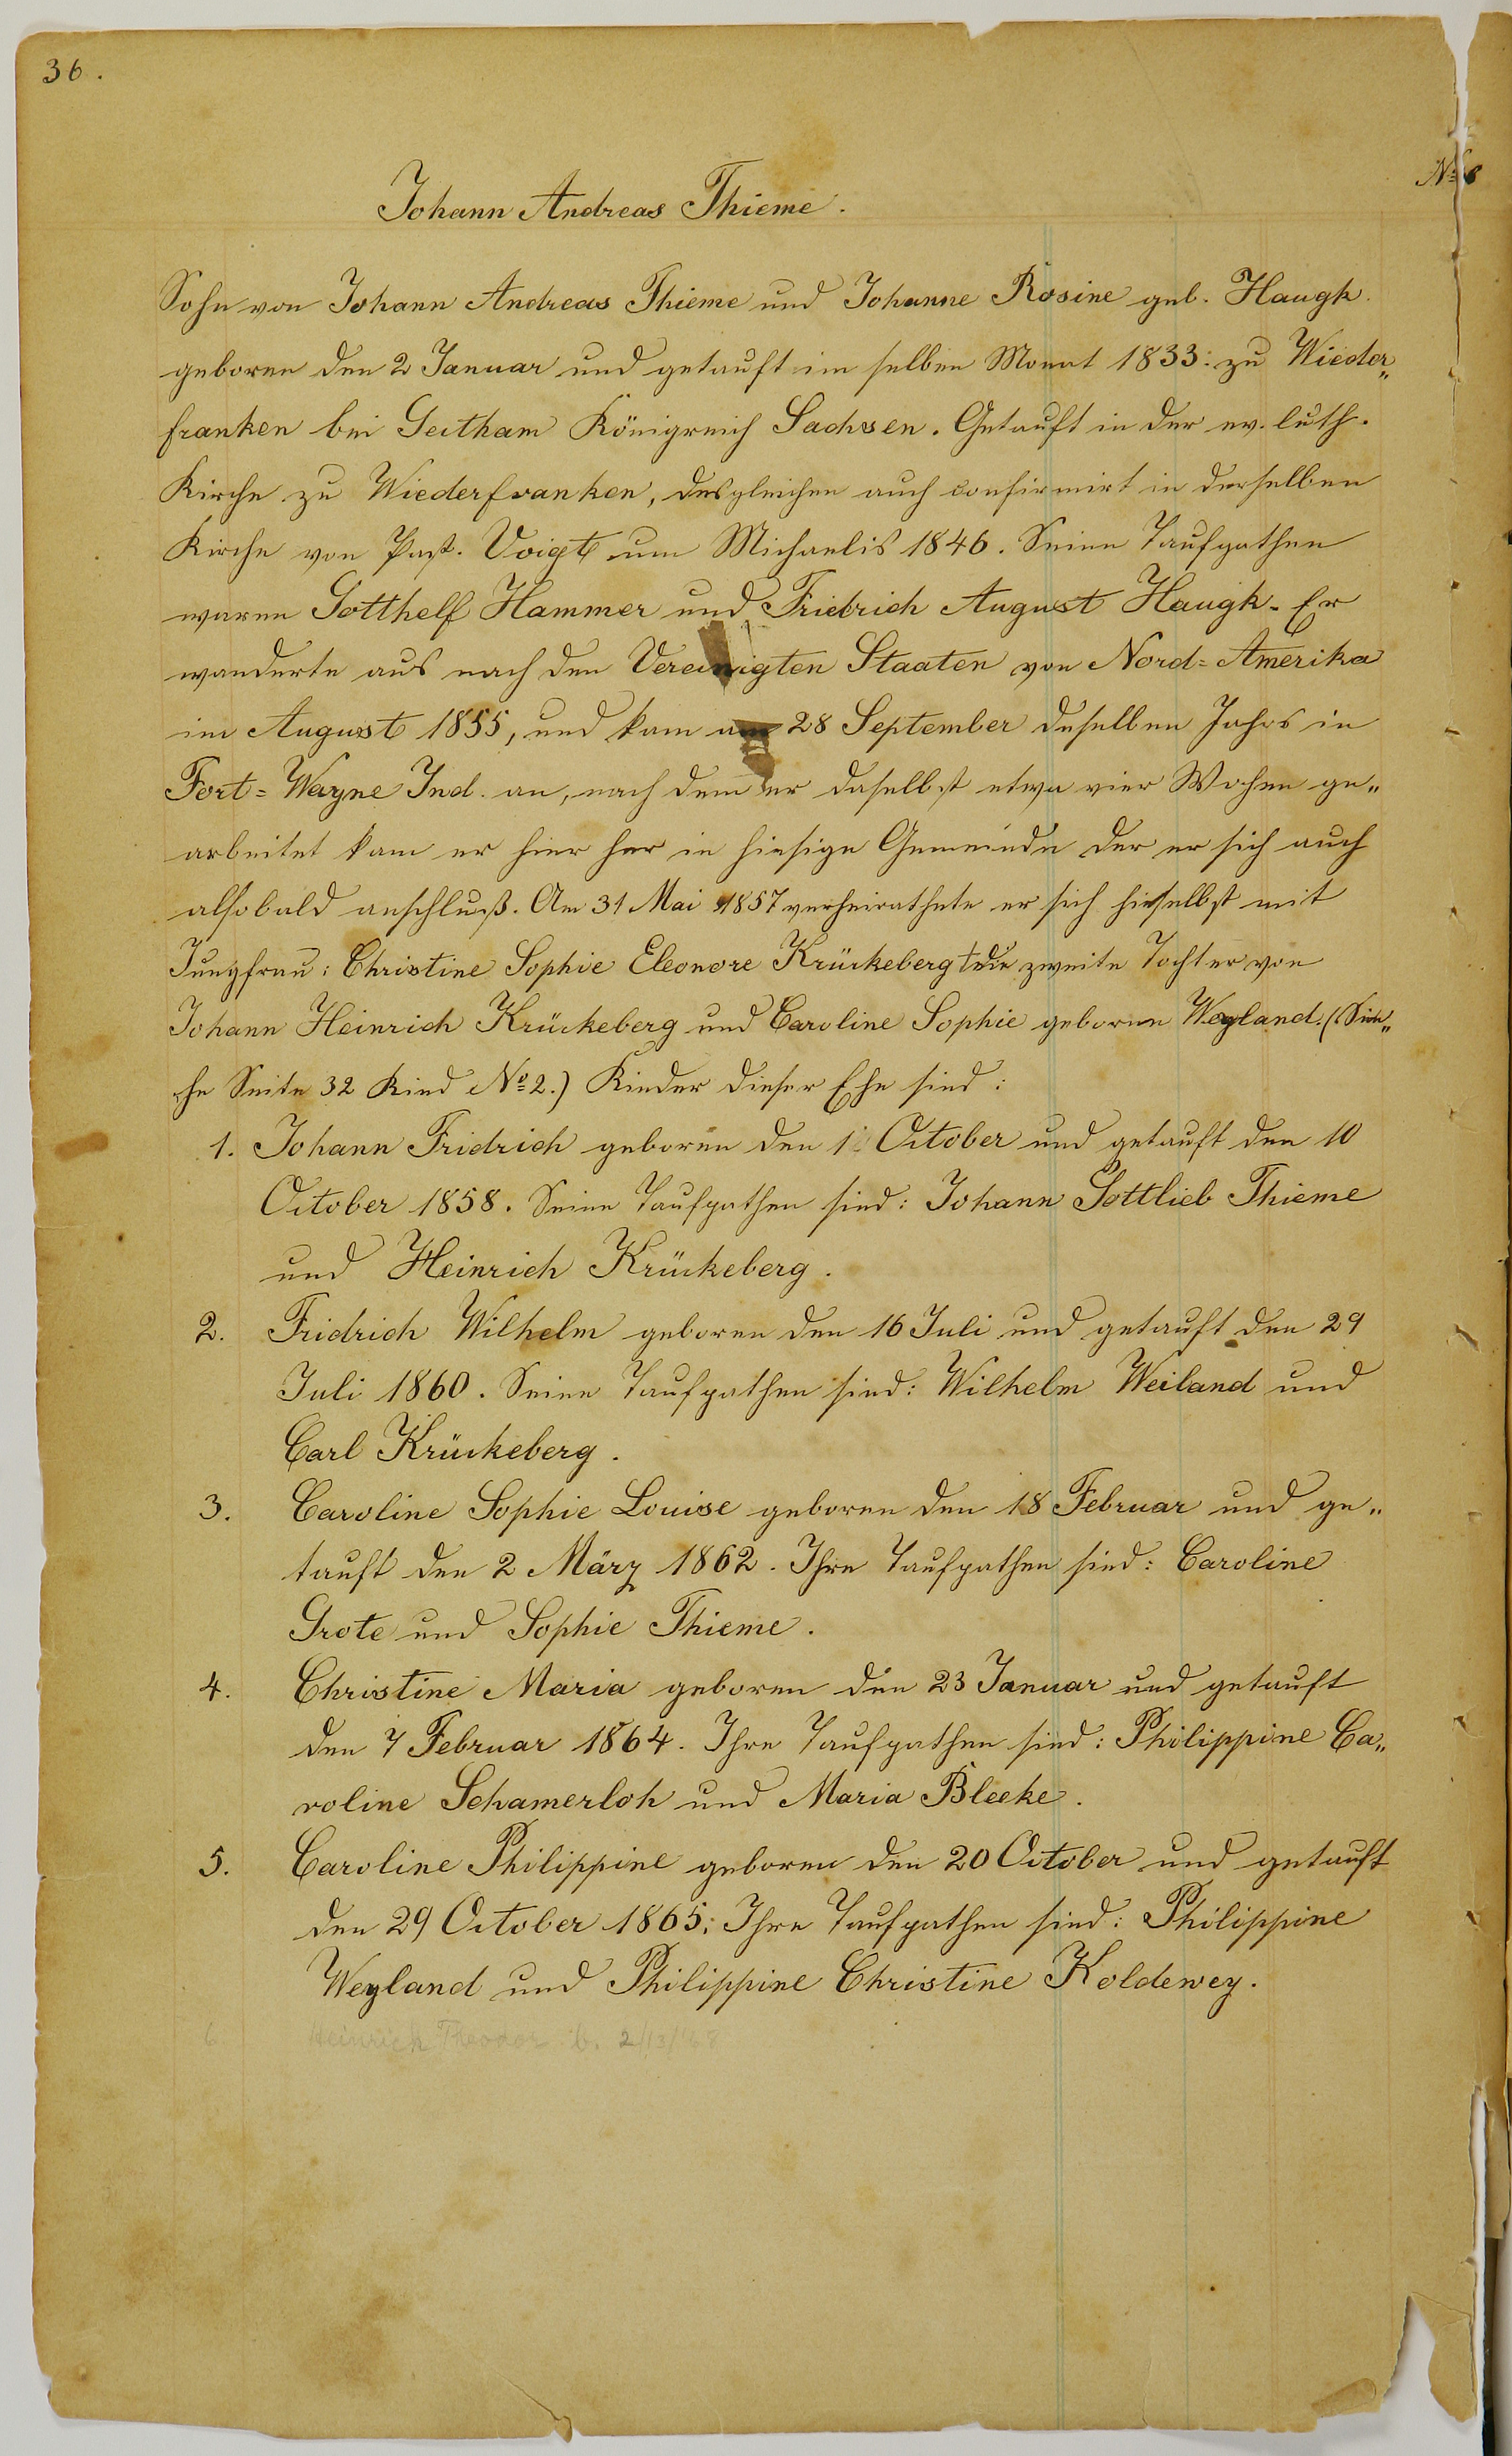 36.
Nº 8
Johann Andreas Thieme.
Sohn von Johann Andreas Thieme und Johanne Rosine geb. Haugk.
geboren den 2 Januar und getauft im selben Monat 1833: zu Wieder„
franken bei Geitham Königreich Sachsen. Getauft in der ev. luth.
Kirche zu Wiederfranken, desgleichen auch confirmirt in derselben
Kirche von Past. Voigt um Michaelis 1846. Seine Taufpathen
waren Gotthelf Hammer und Friedrich August Haugk. Er
wanderte aus nach den Vereinigten Staaten von Nord=Amerika
im August 1855, und kam am 28 September deselben Jahrs in
Fort=Wayne Ind. an, nach dem er daselbst etwa vier Wochen ge„
arbeitet kam er hier her in hiesige Gemeinde der er sich auch
alsobald anschluß. Am 31 Mai 1857 verheirathete er sich hieselbst mit
Jungfrau: Christine Sophie Eleonore Krückeberg die zweite Tochter von
Johann Heinrich Krückeberg und Caroline Sophie geborne Weyland. (Sie„
he Seite 32 Kind Nº 2.) Kinder dieser Ehe sind:
1. Johann Fridrich geboren den 1 October und getauft den 10
October 1858. Seine Taufpathen sind: Johann Gottlieb Thieme
und Heinrich Krückeberg.
2. Fridrich Wilhelm geboren den 16 Juli und getauft den 29
Juli 1860. Seine Taufpathen sind: Wilhelm Weiland und
Carl Krückeberg.
3. Caroline Sophie Louise geboren den 18 Februar und ge„
tauft den 2 März 1862. Ihre Taufpathen sind: Caroline
Grote und Sophie Thieme.
4. Christine Maria geboren den 23 Januar und getauft
den 7 Februar 1864. Ihre Taufpathen sind: Philippine Ca„
roline Schamerloh und Maria Bleeke.
5. Caroline Philippine geboren den 20 October und getauft
den 29 October 1865; Ihre Taufpathen sind: Philippine
Weyland und Philippine Christine Koldewey.
6. Heinrich Theodor b. 2/13/68